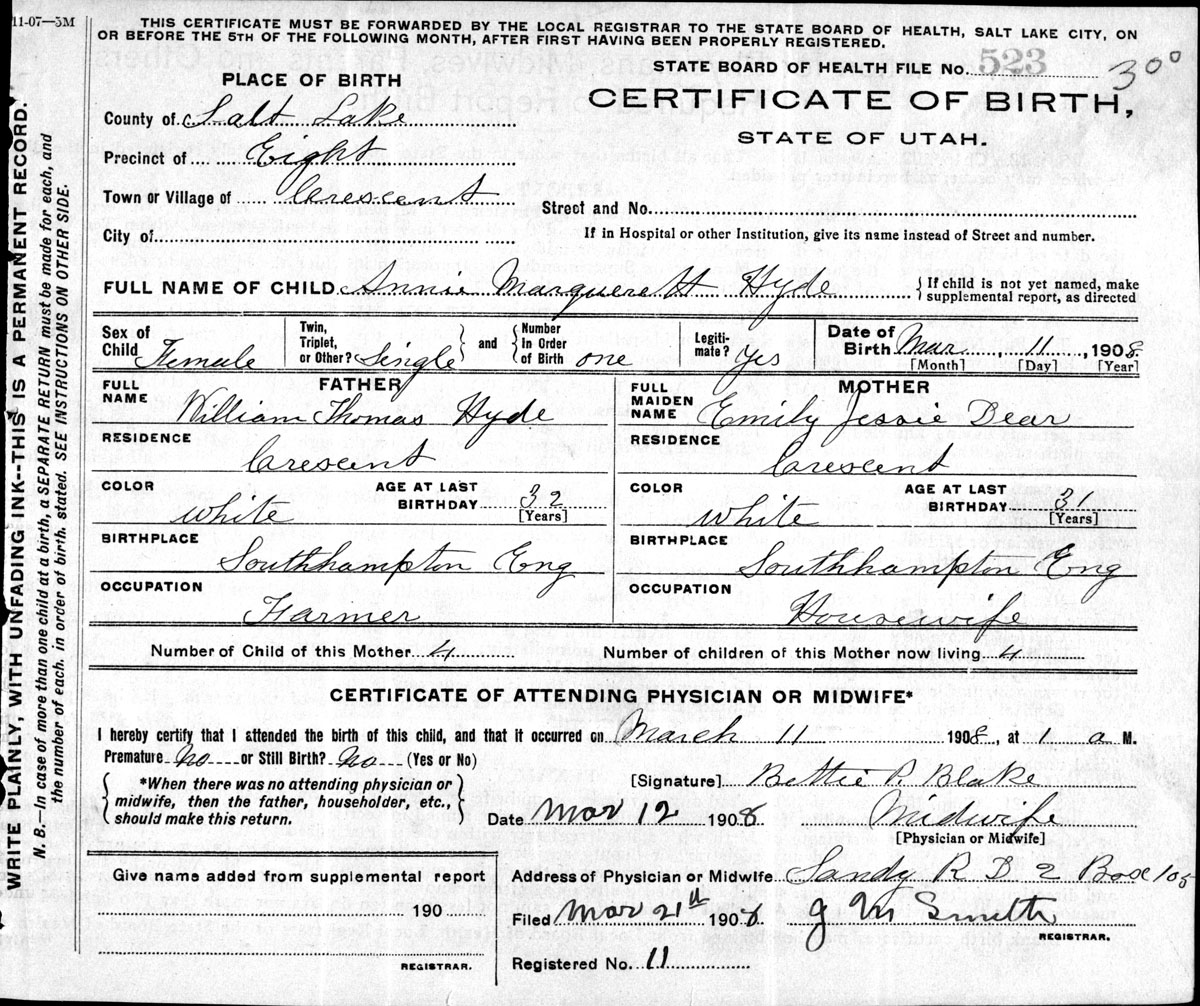 11-07—5M
THIS CERTIFICATE MUST BE FORWARDED BY THE LOCAL REGISTRAR TO THE STATE BOARD OF HEALTH, SALT LAKE CITY, ON
OR BEFORE THE 5TH OF THE FOLLOWING MONTH, AFTER FIRST HAVING BEEN PROPERLY REGISTERED.
STATE BOARD OF HEALTH FILE No. 523 300
CERTIFICATE OF BIRTH,
STATE OF UTAH.
PLACE OF BIRTH
County of Salt Lake
Precinct of Eight
Town or Village of Crescent
City of
Street and No.
If in Hospital or other Institution, give its name instead of Street and number.
FULL NAME OF CHILD Annie Marguerett Hyde
{ If child is not yet named, make
supplemental report, as directed
Sex of Child Female
Twin, Triplet, or Other? Single } and { Number In Order of Birth one
Legiti-mate? Yes
Date of Birth Mar 11, 1908
[Month] [Day] [Year]
FATHER
FULL NAME William Thomas Hyde
RESIDENCE Crescent
COLOR White
AGE AT LAST BIRTHDAY 32 [Years]
BIRTHPLACE Southhampton Eng
OCCUPATION Farmer
MOTHER
FULL MAIDEN NAME Emily Jessie Dear
RESIDENCE Crescent
COLOR White
AGE AT LAST BIRTHDAY 31 [Years]
BIRTHPLACE Southhampton Eng
OCCUPATION Housewife
Number of Child of this Mother 4 Number of children of this Mother now living 4
CERTIFICATE OF ATTENDING PHYSICIAN OR MIDWIFE*
I hereby certify that I attended the birth of this child, and that it occurred on March 11 1908, at 1 a M.
Premature No or Still Birth? No (Yes or No)
{ *When there was no attending physician or
midwife, then the father, householder, etc.,
should make this return. }
[Signature] Bettie P. Blake
Date Mar 12 1908 Midwife
[Physician or Midwife]
Give name added from supplemental report
190
REGISTRAR.
Address of Physician or Midwife Sandy R D 2 Box 105
Filed Mar 21th 1908 J M Smith
REGISTRAR.
Registered No. 11
WRITE PLAINLY, WITH UNFADING INK--THIS IS A PERMANENT RECORD.
N. B.—In case of more than one child at a birth, a SEPARATE RETURN must be made for each, and
the number of each, in order of birth, stated. SEE INSTRUCTIONS ON OTHER SIDE.